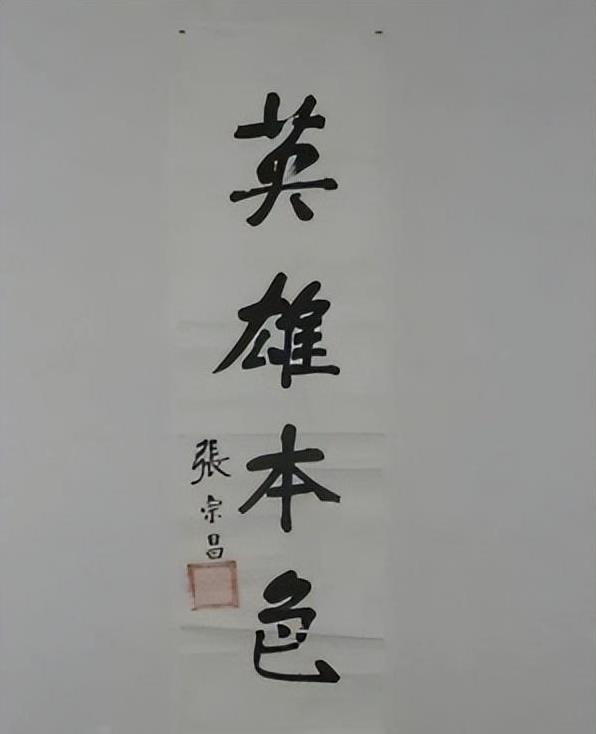 英雄本色
張宗昌